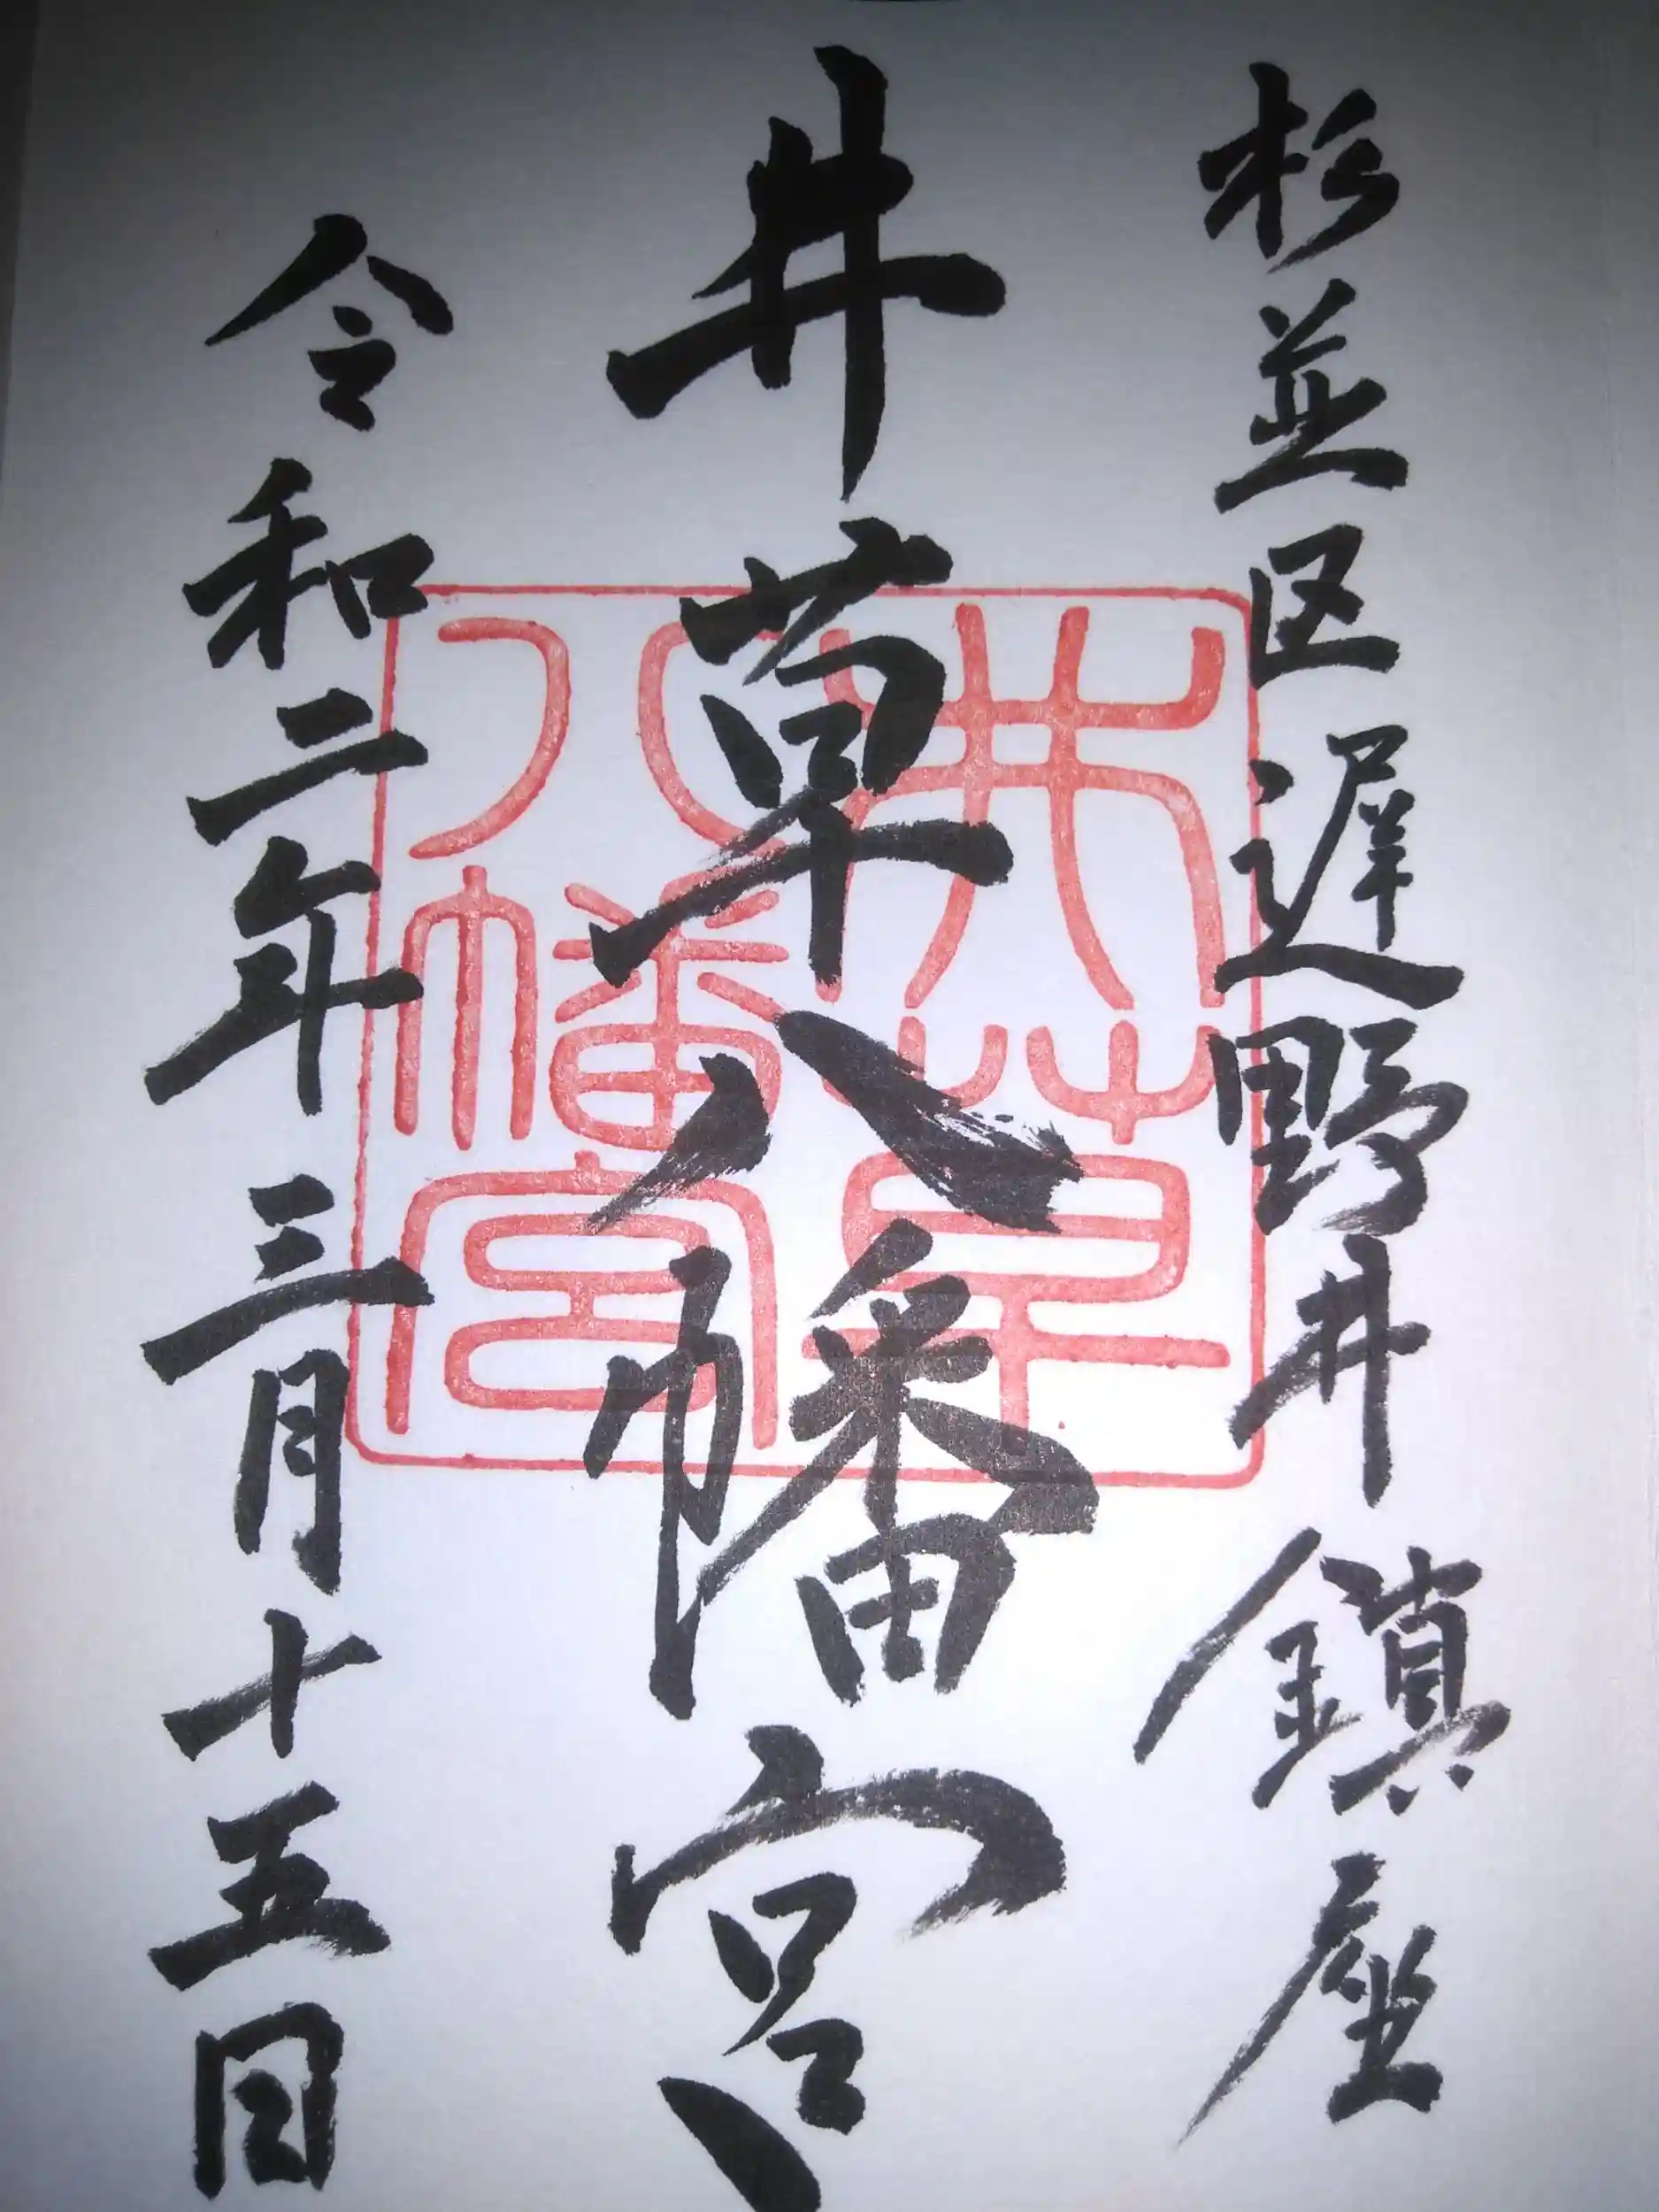 杉並区遅野井鎮座
井草八幡宮
令和二年三月十五日
井草八幡宮